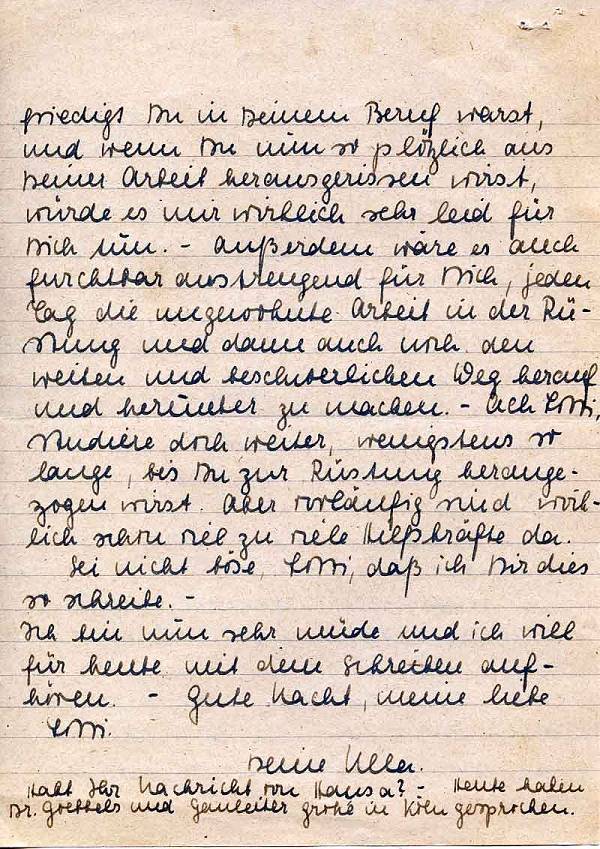 friedigt Du in Deinem Beruf warst,
und wenn Du nun so plötzlich aus
Deiner Arbeit herausgerissen wirst,
würde es mir wirklich sehr leid für
Dich tun. - Außerdem wäre es auch
furchtbar anstrengend für Dich, jeden
Tag die ungewohnte Arbeit in der Rü-
stung und dann auch noch den
weiten und beschwerlichen Weg herauf
und herunter zu machen. - Ach Lotti,
studiere doch weiter, wenigstens so
lange, bis Du zur Rüstung herange-
zogen wirst. Aber vorläufig sind wirk-
lich schon viel zu viele Hilfskräfte da.
Sei nicht böse, Lotti, daß ich Dir dies
so schreibe. -
Ich bin nun sehr müde und ich will
für heute mit dem Schreiben auf-
hören. - Gute Nacht, meine liebe
Lotti.
Deine Ulla.
Habt Ihr Nachricht von Hansa? - Heute haben
Dr. Goebbels und Gauleiter Grohé in Köln gesprochen.